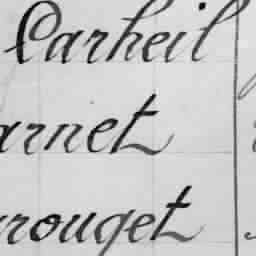 Carheil
arnet
rouget